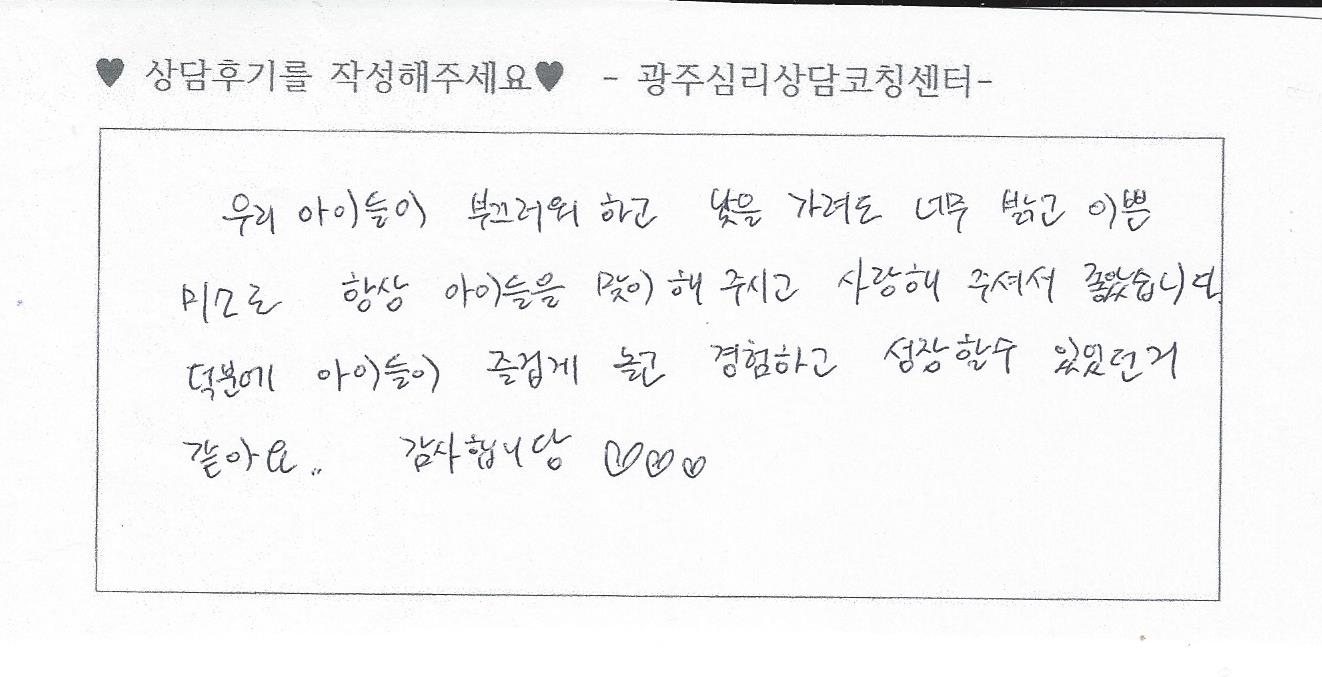 ♥ 상담후기를 작성해주세요♥ - 광주심리상담코칭센터-
우리 아이들이 부끄러워 하고 낯을 가려도 너무 밝고 이쁜
미소로 항상 아이들을 맞이 해 주시고 사랑해 주셔서 좋았습니다.
덕분에 아이들이 즐겁게 놀고 경험하고 성장할수 있었던거
같아요.. 감사합니당 ♡♡♡